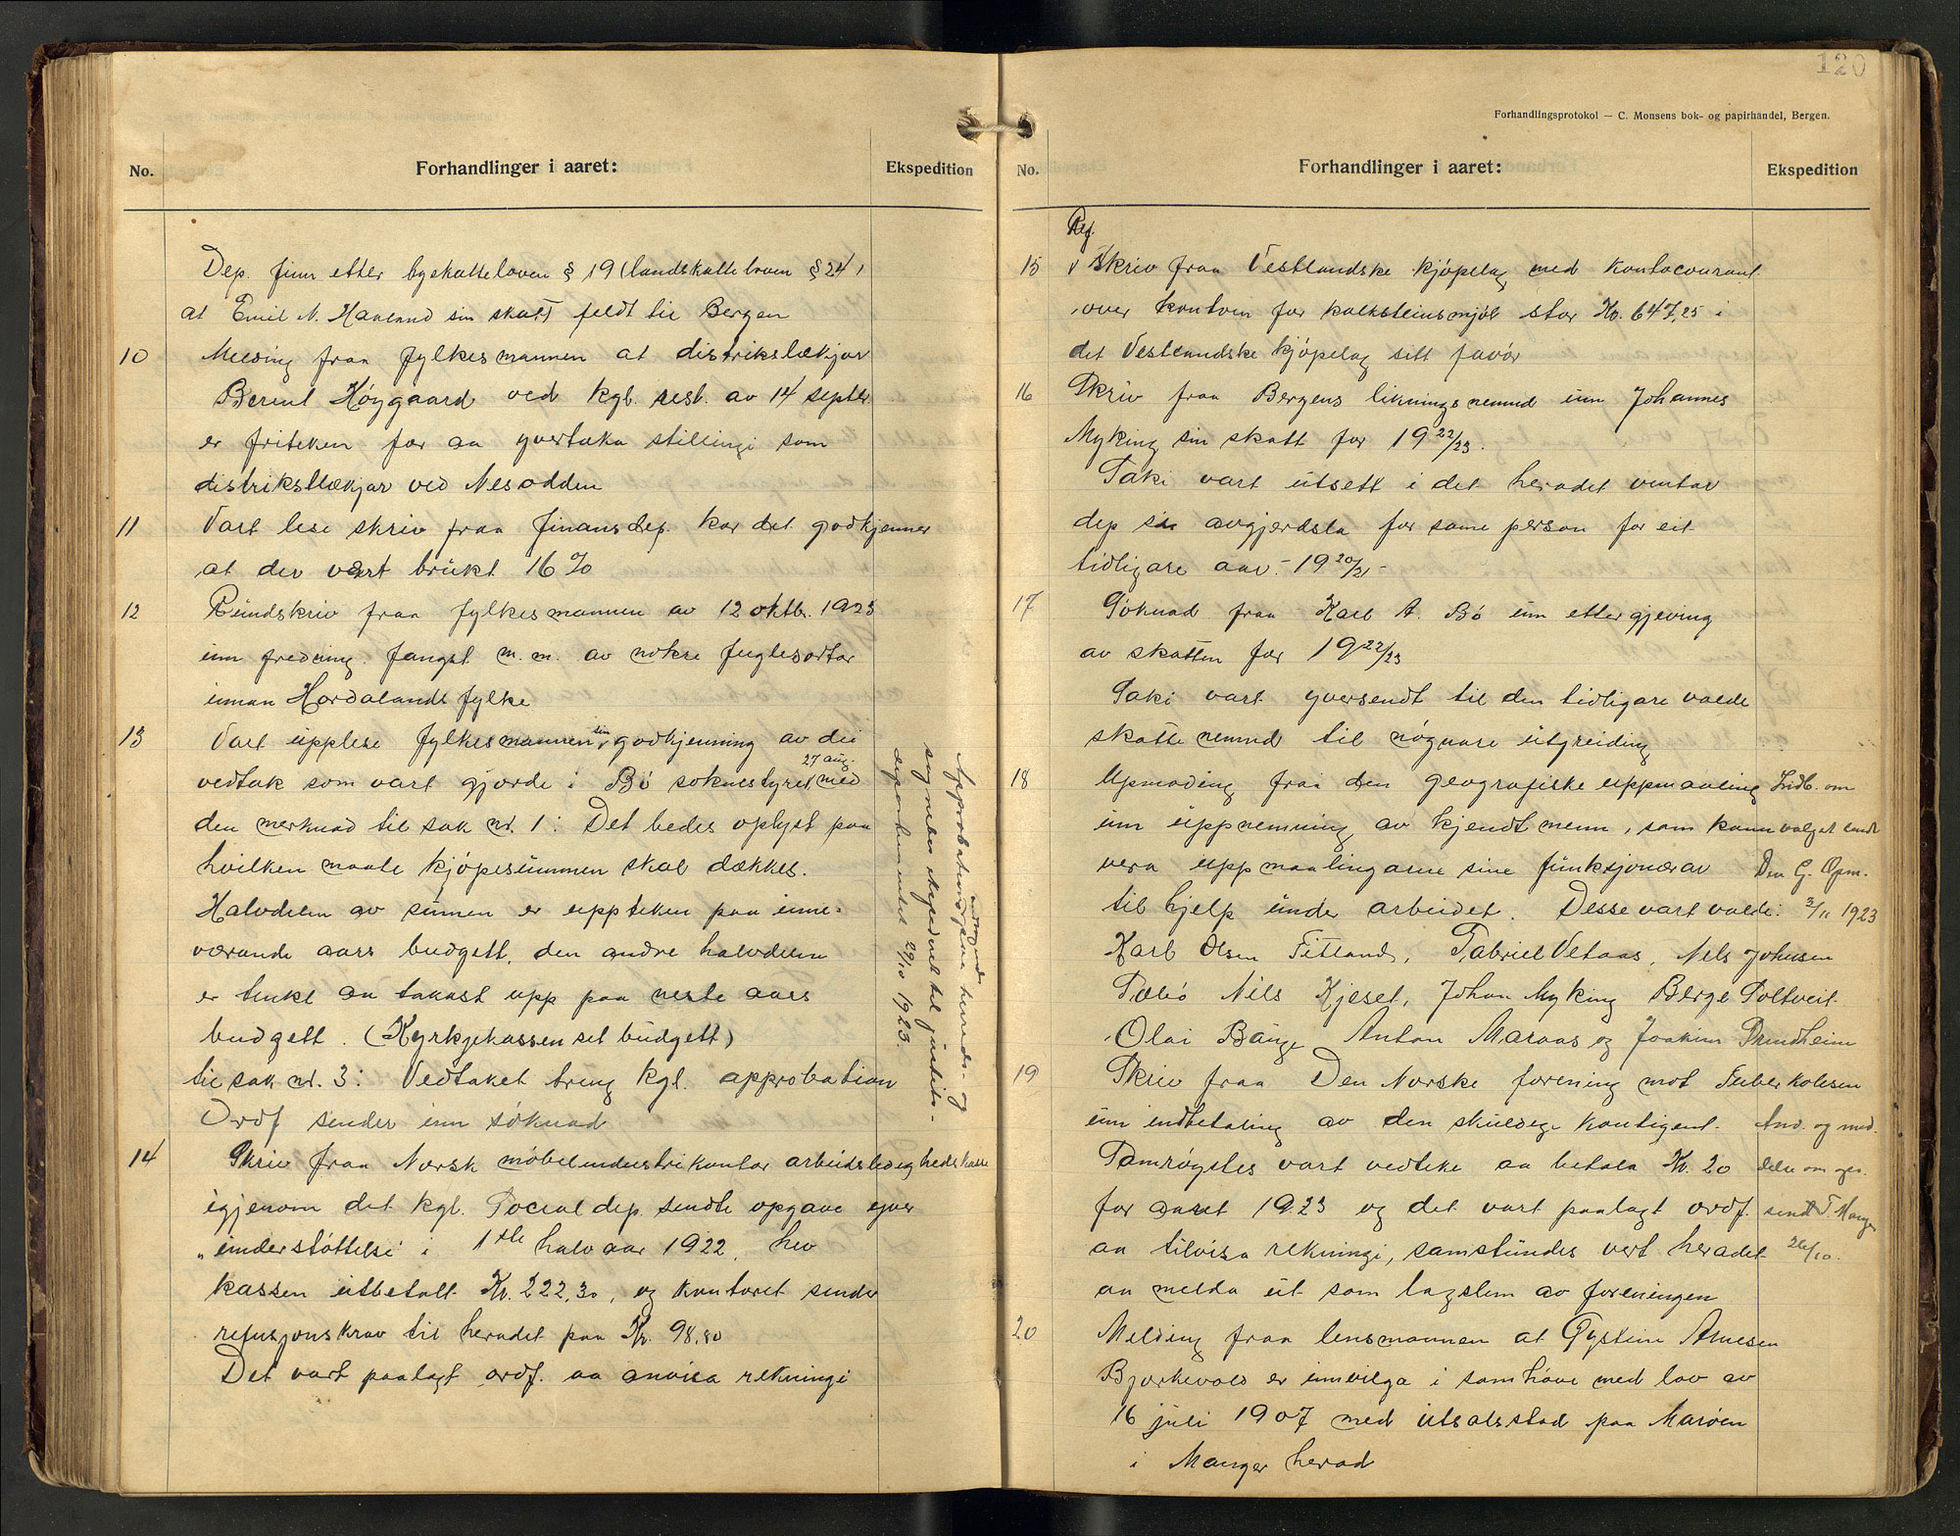 No.
Forhandlinger i aaret:
Ekspedition
Dep. finn etter byskatteloven § 19 (landskatteloven § 24)
at Emil N. Haaland sin skatt feldt til Bergen
10 Melding fraa fylkesmannen at distrikslækjar
Bernt Høygaard ved kgl. resl. av 14 septbr
er friteken for aa yvertaka stillingi som
distrikstlækjar ved Nesodden
11 Vart lese skriv fraa finansdep. kor det godkjenner
at der vært brukt 16 %
12 Rundskriv fraa fylkesmannen av 12 oktb. 1923
um freding fangst m. m. av nokre fuglesortar
innan Hordalands fylke
13 Vart upplese fylkesmannen sin godkjenning av dei
vedtak som vart gjorde i Bø soknestyret 27 aug. med
den merknad til sak nr. 1: Det bedes oplyst paa
hvilken maate kjøpesummen skal dækkes.
Halvdelen av sumen er uppteken paa inne-
værande aars budgett, den andre halvdelen
er tenkt aa takast upp paa neste aars
budgett. (Kyrkjekassen set budgett)
til sak nr. 3: Vedtaket treng kgl. approbation
Ordf sender inn søknad
Approbationsfjene herreds- og
sogneles eksp. til justits-
departementet 29/10 1923.
14 Skriv fraa Norsk møbelindustrikontor arbeidsledighedskasse
igjenom det kgl. Social dep. sendte opgave yver
„understøttelse i 1ste halvaar 1922, hev
kassen utbetalt Kr. 222,30, og kontoret sender
refusjonskrav til heradet paa Kr. 98,80
Det vart paalagt ordf. aa anvisa rekningi
120
Forhandlingsprotokol — C. Monsens bok- og papirhandel, Bergen.
No.
Forhandlinger i aaret:
Ekspedition
Ref.
15 Skriv fraa Vestlandske kjøpelag med kontocourant
over kontoen for kalksteinsmjøl stor Kr. 647,25 i
det Vestlandske kjøpelag sitt favør
16 Skriv fraa Bergens likningsnemnd um Johannes
Myking sin skatt for 1922/23.
Saki vart utsett i det heradet ventar
dep sin avgjerdsla for same person for eit
tidligare aar. - 1920/21 -
17 Søknad fraa Karl A. Bø um ettergjeving
av skatten for 1922/23
Saki vart yversendt til den tidligare valde
skattenemnd til nøgnare utgreiding
18 Upmoding fraa den geografiske uppmaaling
um uppnemning av kjendtmenn, som kann
vera uppmaalingarne sine funksjonærar
til hjelp under arbeidet. Desse vart valde:
Karl Olsen Titland, Gabriel Vetaas, Nels Johnsen
Sælø Nils Kjeset, Johan Myking Berge Soltveit
Olai Bauge Anton Maraas og Joakim Sundheim
Indb. om
valget sendt
Den G. Opm.
3/11 1923
19 Skriv fraa Den Norske forening mot Tuberkolosen
um indbetaling av den skuldige kontigent.
Samrøystes vart vedteke aa betala Kr. 20
for aaret 1923 og det vart paalagt ordf.
aa tilvisa rekningi, samstundes vert heradet
aa melda ut som lagslem av foreningen
Anv. og med-
delse om ops.
sendt T. Manger
26/10.
20 Melding fraa lensmannen at Øystein Arnesen
Bjørkevold er innvilga i samhøve med lov av
16 juli 1907 med utsalsstad paa Marøen
i Manger herad